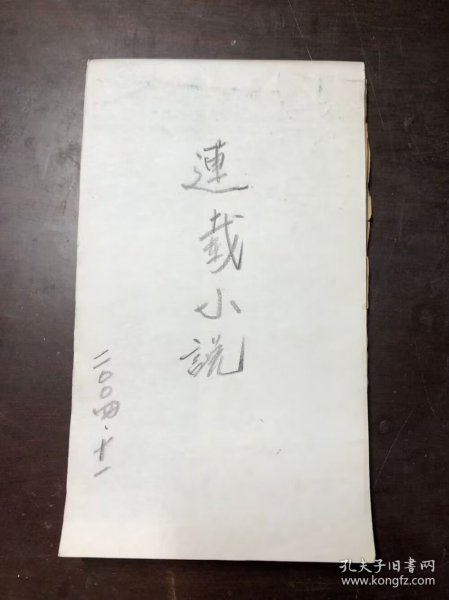 連載小說
二〇〇四.十一
孔夫子旧书网
www.kongfz.com